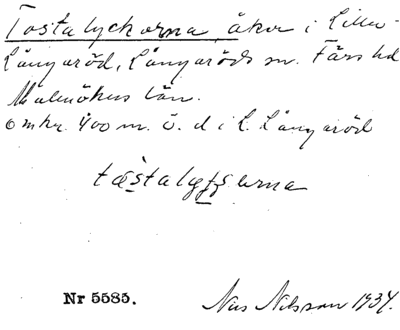 Tostalyckorna åker i Lilla-
Långaröd, Långaröds sn. Färs hd
Malmöhus län.
omkr. 400 m. ö. d i L. Långaröd
Nr 5585.
Nils Nilsson 1934.